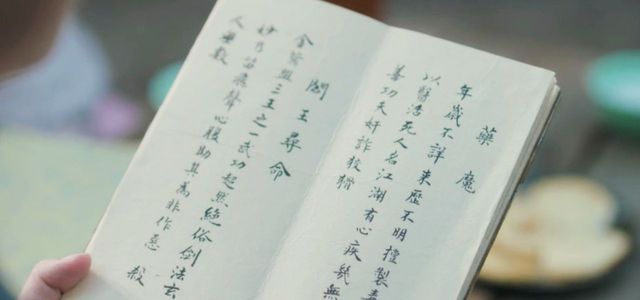 藥魔
年歲不詳來歷不明擅製毒
以醫活死人名江湖有心疾幾無
善功夫奸詐狡猾
閻王尋命
金鴛盟三王之一武功超然絕俗劍法玄
妙乃笛飛聲心腹助其為非作惡殺
人無數